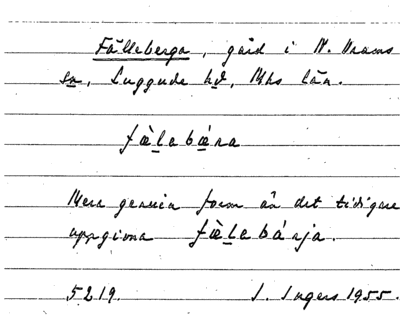 Fälleberga, gård i N. Vrams
sn, Luggude hd, Mhs län.
fæ̀lebǽra
Mera genuin form än det tidigare
uppgivna fæ̀lebárja.
5219. I. Ingers 1955.